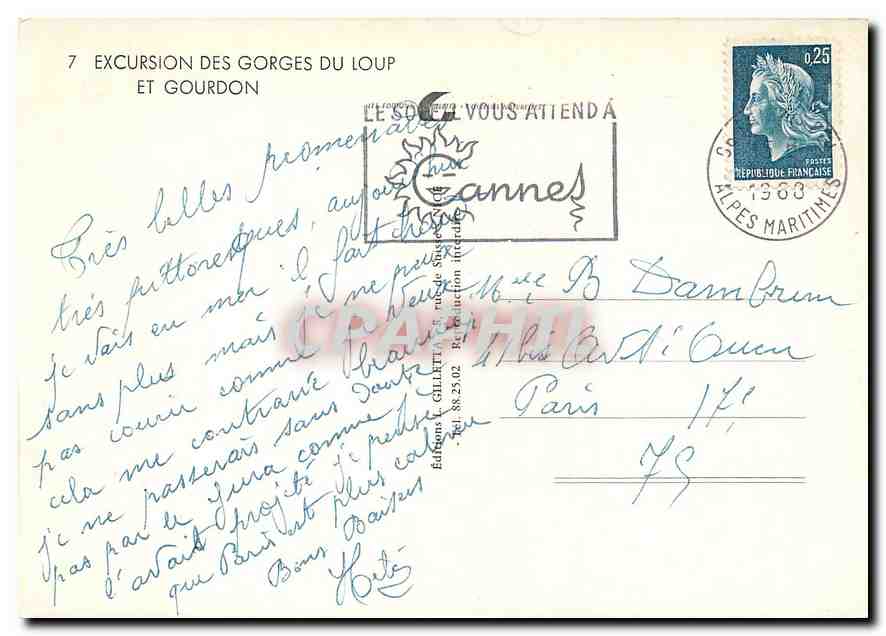 7 EXCURSION DES GORGES DU LOUP
ET GOURDON
0,25
POSTES
REPUBLIQUE FRANÇAISE
LE SOLEIL VOUS ATTEND À
Cannes
1968
ALPES MARITIMES
Très belles promenades
très pittoresques, aujourd'hui
je vais en mer il fait
sans plus mais je ne peux
pas courir comme je veux
cela me contrarie
je ne passerais sans doute
pas par le Jura comme je
l'avait projeté je pense
que Paris est plus calme
Bons Baisers
Melle B
Paris 17e
75
Editions L. GILLETTA - 8, rue de Suisse - NICE
Tél. 88.25.02 Reproduction interdite
CPAPHIL